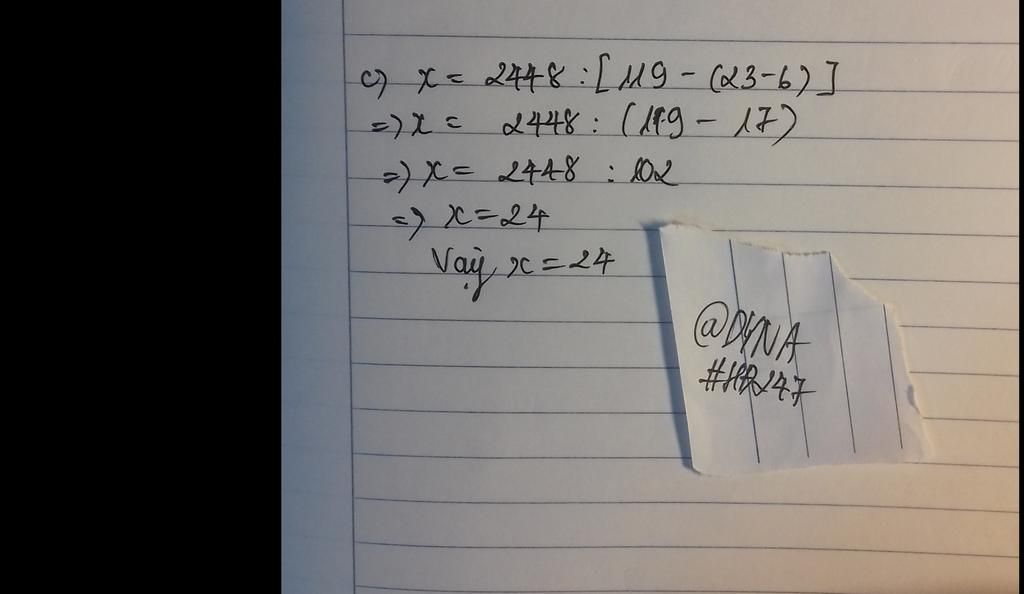 c) x = 2448 : [119 - (23-6)]
=> x = 2448 : (119 - 17)
=> x = 2448 : 102
=> x = 24
Vậy x = 24
@DYNA
#HR247